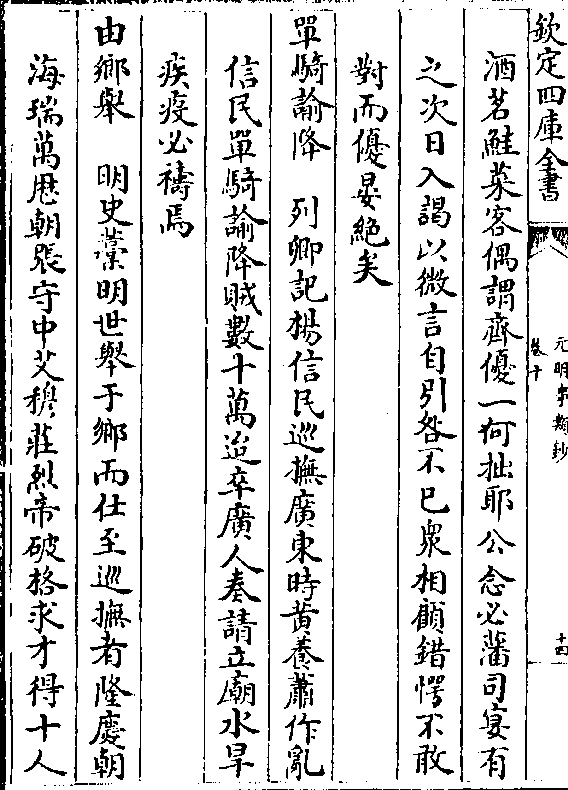 欽定四庫全書
元明事類鈔
卷十
十四
酒茗鮭菜客偶謂齊優一何拙耶公念必藩司宴有
之次日入謁以微言自引咎不已衆相顧錯愕不敢
對而優宴絶矣
單騎諭降　列卿記楊信民巡撫廣東時黄養蕭作亂
信民單騎諭降賊數十萬迨卒廣人奏請立廟水旱
疾疫必禱焉
由鄉舉　明史藁明世舉于鄉而仕至巡撫者隆慶朝
海瑞萬厯朝張守中艾穆莊烈帝破格求才得十人